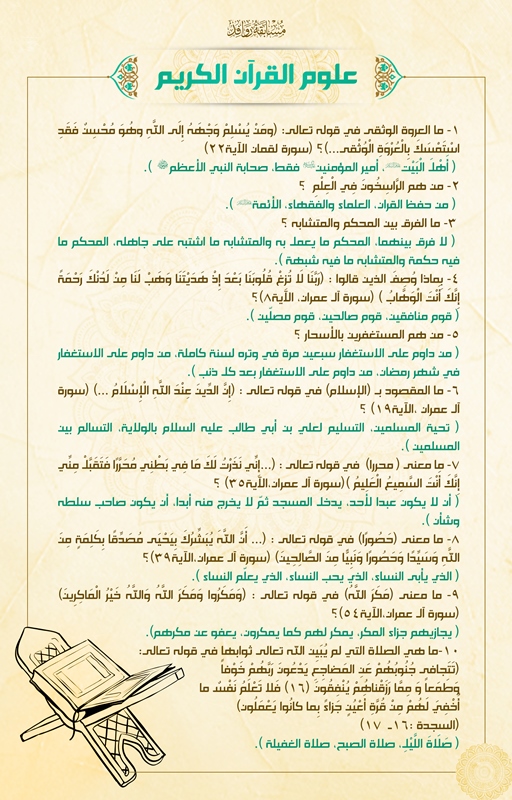 مسابقة روافد
علوم القرآن الكريم
١- ما العروة الوثقى في قوله تعالى: (وَمَنْ يُسْلِمْ وَجْهَهُ إِلَى اللَّهِ وَهُوَ مُحْسِنٌ فَقَدِ
اسْتَمْسَكَ بِالْعُرْوَةِ الْوُثْقَى...)؟ (سورة لقمان الآية٢٢)
( أَهْلَ الْبَيْتِ، أمير المؤمنين فقط، صحابة النبي الأعظم ).
٢- من هم الرَّاسِخُونَ فِي الْعِلْمِ ؟
( من حفظ القران، العلماء والفقهاء، الأئمة ).
٣- ما الفرق بين المحكم والمتشابه ؟
( لا فرق بينهما، المحكم ما يعمل به والمتشابه ما اشتبه على جاهله، المحكم ما
فيه حكمة والمتشابه ما فيه شبهة ).
٤- بماذا وُصِفَ الذين قالوا : (رَبَّنَا لَا تُزِغْ قُلُوبَنَا بَعْدَ إِذْ هَدَيْتَنَا وَهَبْ لَنَا مِنْ لَدُنْكَ رَحْمَةً
إِنَّكَ أَنْتَ الْوَهَّابُ ) (سورة آل عمران، الآية٨)؟
( قوم منافقين، قوم صالحين، قوم مصلّين ).
٥- من هم المستغفرين بالأسحار ؟
( من داوم على الاستغفار سبعين مرة في وتره لسنة كاملة، من داوم على الاستغفار
في شهر رمضان، من داوم على الاستغفار بعد كل ذنب ).
٦- ما المقصود بـ (الإسلام) في قوله تعالى : (إِنَّ الدِّينَ عِنْدَ اللَّهِ الْإِسْلَامُ ...) (سورة
آل عمران ،الآية١٩) ؟
( تحية المسلمين، التسليم لعلي بن أبي طالب عليه السلام بالولاية، التسالم بين
المسلمين ).
٧- ما معنى ( محررا) في قوله تعالى : (...إِنِّي نَذَرْتُ لَكَ مَا فِي بَطْنِي مُحَرَّرًا فَتَقَبَّلْ مِنِّي
إِنَّكَ أَنْتَ السَّمِيعُ الْعَلِيمُ )(سورة آل عمران،الآية٣٥) ؟
( أن لا يكون عبدا لأحد، يدخل المسجد ثمّ لا يخرج منه أبدا، أن يكون صاحب سلطه
وشأن ).
٨- ما معنى (حَصُورًا) في قوله تعالى : (... أَنَّ اللَّهَ يُبَشِّرُكَ بِيَحْيَى مُصَدِّقًا بِكَلِمَةٍ مِنَ
اللَّهِ وَسَيِّدًا وَحَصُورًا وَنَبِيًّا مِنَ الصَّالِحِينَ) (سورة آل عمران،الآية٣٩)؟
( الذي يأبى النساء، الذي يحب النساء، الذي يعلّم النساء ).
٩- ما معنى (مَكَرَ اللَّهُ) في قوله تعالى : (وَمَكَرُوا وَمَكَرَ اللَّهُ وَاللَّهُ خَيْرُ الْمَاكِرِينَ)
(سورة آل عمران،الآية٥٤)؟
( يجازيهم جزاء المكر، يمكر لهم كما يمكرون، يعفو عن مكرهم).
١٠- ما هي الصلاة التي لم يُبَيِّن الله تعالى ثوابها في قوله تعالى:
(تَتَجَافَى جُنُوبُهُمْ عَنِ الْمَضَاجِعِ يَدْعُونَ رَبَّهُمْ خَوْفاً
وَطَمَعاً وَ مِمَّا رَزَقْنَاهُمْ يُنْفِقُونَ (١٦) فَلا تَعْلَمُ نَفْسٌ ما
أُخْفِيَ لَهُمْ مِنْ قُرَّةِ أَعْيُنٍ جَزَاءً بِما كانُوا يَعْمَلُونَ)
(السجدة :١٦ـ ١٧)
( صَلَاةَ اللَّيْلِ، صلاة الصبح، صلاة الغفيلة ).